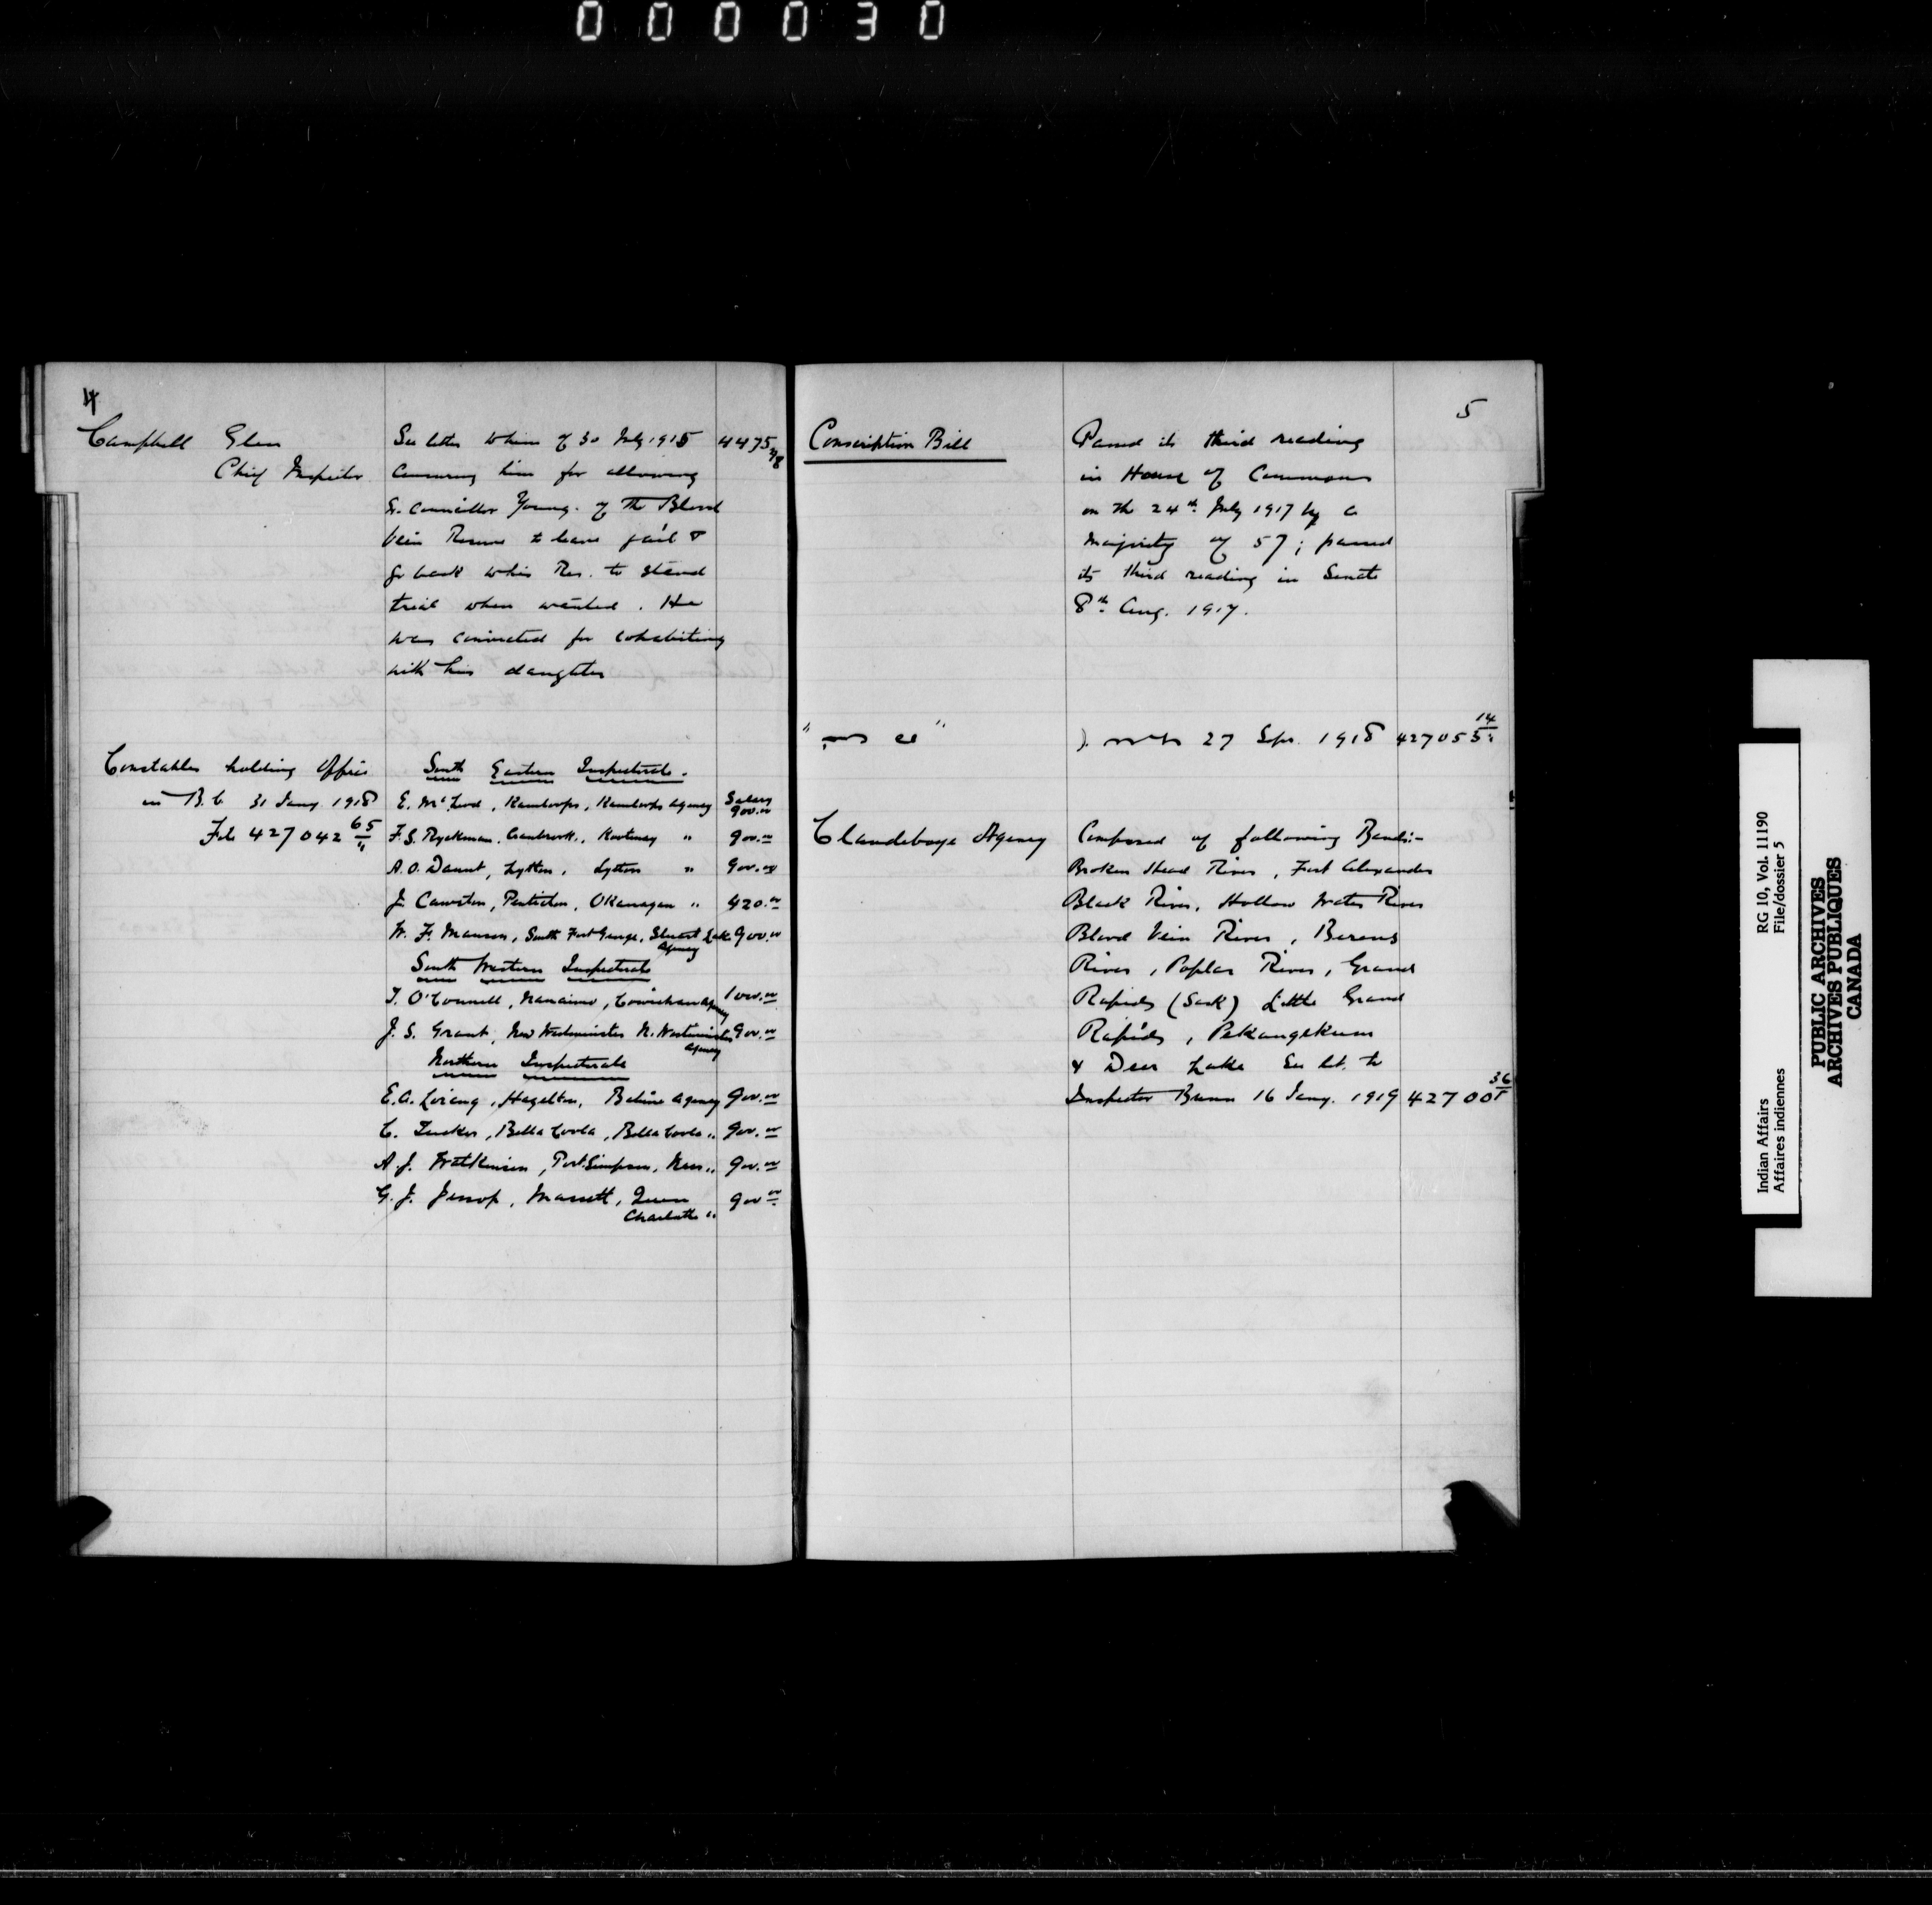 000030
4
Campbell Glen
Chief Inspector
See letter to him of 30 July 1915 4475
censuring him for allowing
Ex. Councillor Young. of the Blood
Vein Reserve to leave jail &
go back to his Res. to stand
trial when wanted. He
was convicted for cohabiting
with his daughter
Constables holding Office
in B.C 31 Jany 1918
File 427042 65/11
South Eastern Inspectorate.
E. McLeod, Kamloops, Kamloops Agency Salary 900.00
F.S. Ryckman, Cranbrook, Kootenay " 900.00
A.O. Daunt, Lytton, Lytton " 900.00
J. Cawston, Penticton, Okanagan " 420.00
W. F. Manson, South Fort George, Stuart Lake Agency 900.00
South Western Inspectorate
T. O'Connell, Nanaimo, Cowichan Agency 1000.00
J. S. Grant, New Westminster N. Westminster Agency 900.00
Northern Inspectorate
E.A. Loring, Hazelton, Babine Agency 900.00
C. Tucker, Bella Coola, Bella Coola " 900.00
A J. Watkinson, Port Simpson, Nass " 900.00
G. J. Jessop, Massett, Queen Charlotte " 900.00
5
Conscription Bill
Passed its third reading
in House of Commons
on the 24th July 1917 by a
Majority of 57; passed
its third reading in Senate
8th Aug. 1917.
27 Sep. 1918 427055 14
Clandeboye Agency
Composed of following Bands:-
Broken Head River, Fort Alexander
Black River, Hollow Water River
Blood Vein River, Berens
River, Poplar River, Grand
Rapids (Sask) Little Grand
Rapids, Pekangekum
& Deer Lake See let. to
Inspector Bunn 16 Jany. 1919 42700 36/1
Indian Affairs RG 10, Vol. 11190
Affaires indiennes File/dossier 5
PUBLIC ARCHIVES
ARCHIVES PUBLIQUES
CANADA